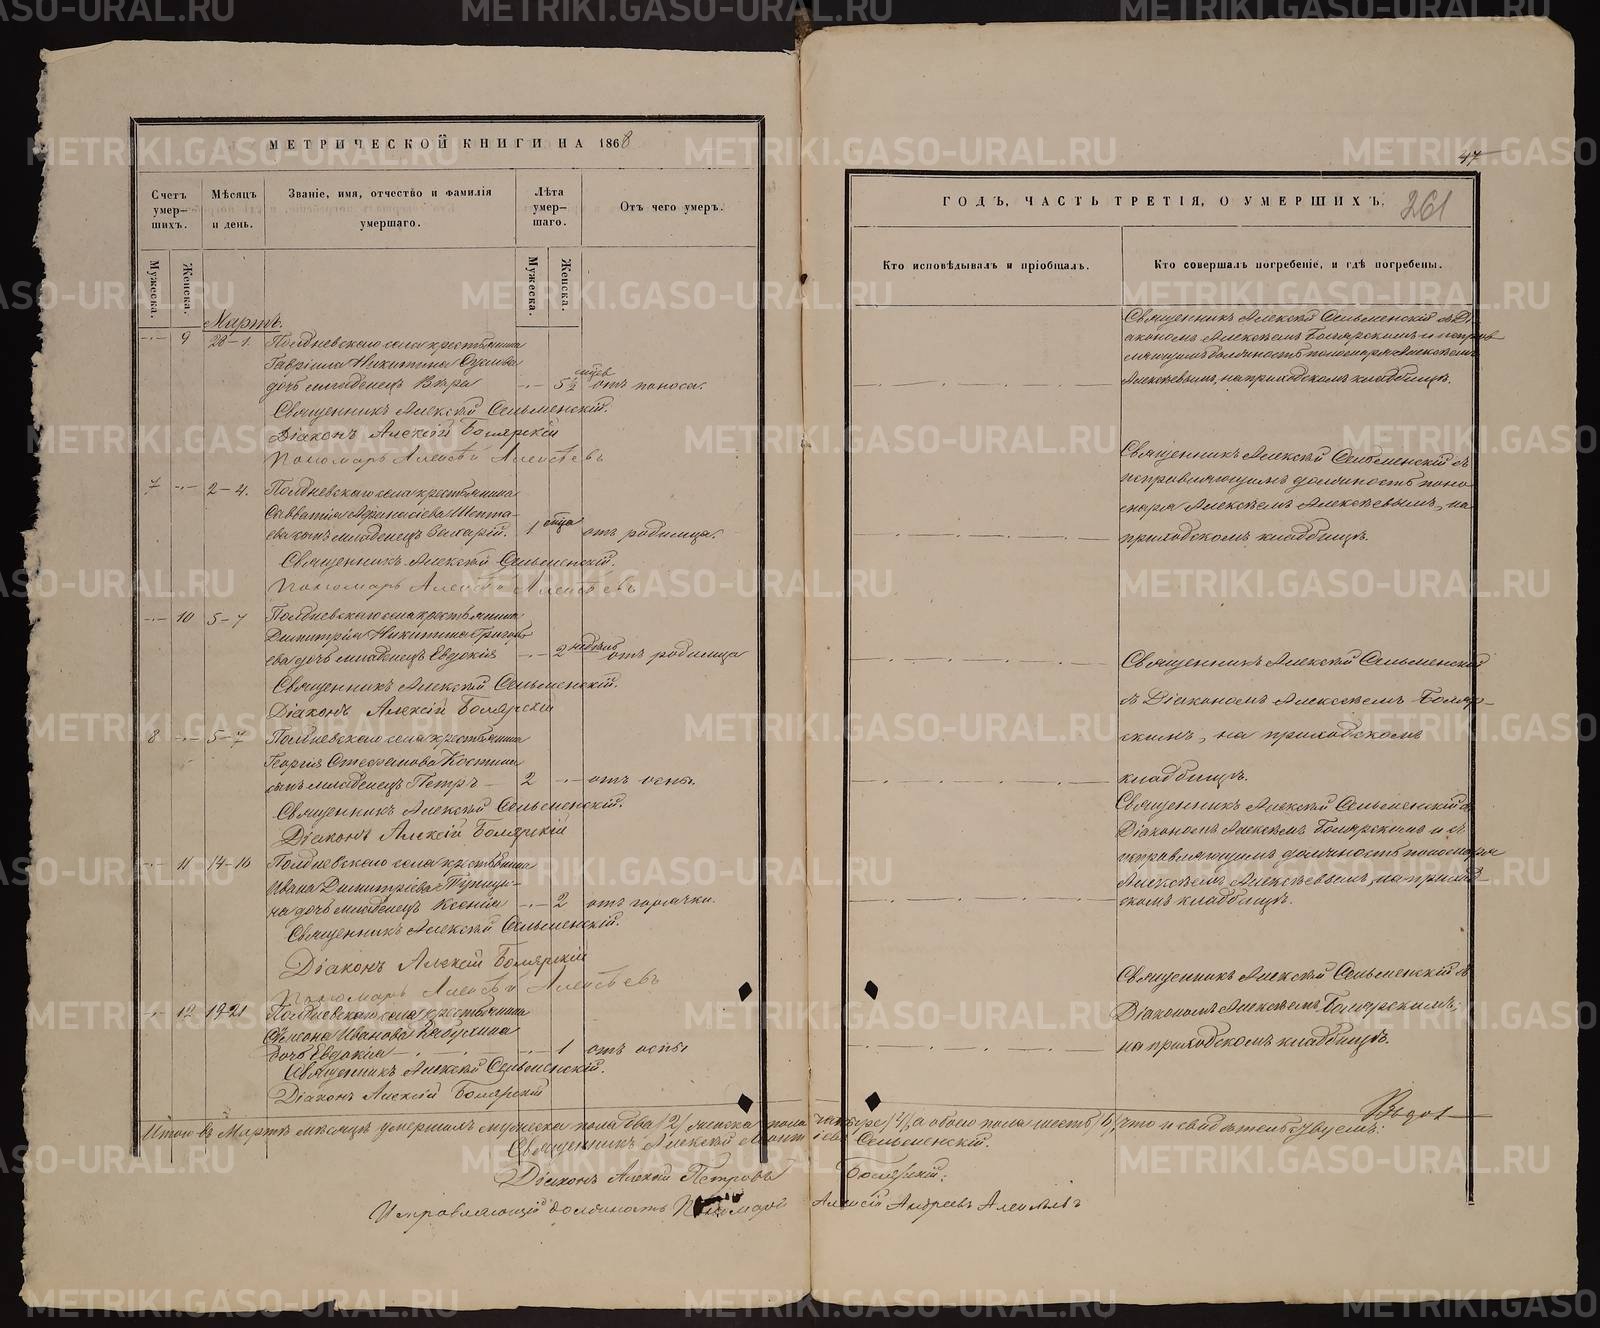 МЕТРИЧЕСКОЙ КНИГИ НА 1868
Счетъ умер-шихъ.
Мѣсяцъ и день.
Званіе, имя, отчество и фамилія умершаго.
Лѣта умер-шаго.
Отъ чего умеръ.
Мужеска.
Женска.
Мужеска.
Женска.
Мартъ.
9 28–1. Полдневскаго села крестьянина
Гавріила Никитина
дочь младенецъ Вѣра 5½ мцев отъ поноса.
Священникъ Алексѣй Сельменскій.
Діаконъ Алексій Боярскій
Пономарь Алексѣй Алексѣевъ
7 2–4. Полдневскаго села крестьянина
Савватія Афанасіева Шепта-
ева сынъ младенецъ Захарій. 1 мца отъ родимца.
Священникъ Алексѣй Сельменскій.
Пономарь Алексѣй Алексѣевъ
10 5–7 Полдневскаго села крестьянина
Димитрія Никитина Григорь-
ева дочь младенецъ Евдокія 2 недѣль отъ родимца
Священникъ Алексѣй Сельменскій.
Діаконъ Алексій Боярскій
8 5–7 Полдневскаго села крестьянина
Георгія Стефанова Костина
сынъ младенецъ Петръ 2 отъ оспы.
Священникъ Алексѣй Сельменскій.
Діаконъ Алексій Боярскій
11 14–16 Полдневскаго села крестьянина
Ивана Димитріева Пупыши-
на дочь младенецъ Ксенія 2 отъ горячки.
Священникъ Алексѣй Сельменскій.
Діаконъ Алексій Боярскій
Пономарь Алексѣй Алексѣевъ
12 19–21 Полдневскаго села крестьянина
Симона Иванова
дочь Евдокія 1 отъ оспы
Священникъ Алексѣй Сельменскій.
Діаконъ Алексій Боярскій
47
ГОДЪ, ЧАСТЬ ТРЕТІЯ, О УМЕРШИХЪ.
261
Кто исповѣдывалъ и пріобщалъ.
Кто совершалъ погребеніе, и гдѣ погребены.
Священникъ Алексѣй Сельменскій съ Ді-
акономъ Алексѣемъ Боярскимъ и исправ-
ляющимъ должность пономаря Алексѣемъ
Алексѣевымъ, на приходскомъ кладбищѣ.
Священникъ Алексѣй Сельменскій съ
исправляющимъ должность поно-
маря Алексѣемъ Алексѣевымъ, на
приходскомъ кладбищѣ.
Священникъ Алексѣй Сельменскій
съ Діакономъ Алексѣемъ Бояр-
скимъ, на приходскомъ
кладбищѣ.
Священникъ Алексѣй Сельменскій съ
Діакономъ Алексѣемъ Боярскимъ и съ
исправляющимъ должность пономаря
Алексѣемъ Алексѣевымъ, на приход-
скомъ кладбищѣ.
Священникъ Алексѣй Сельменскій съ
Діакономъ Алексѣемъ Боярскимъ,
на приходскомъ кладбищѣ.
Итого въ Мартѣ мѣсяцѣ умершихъ мужеска пола два /2/, женска пола четыре /4/, а обоего пола шесть /6/, что и свидѣтельствуемъ:
Священникъ Алексѣй Сельменскій.
Діаконъ Алексѣй Петровъ Боярскій:
Исправляющій должность Пономаря Алексѣй Андреевъ Алексѣевъ
METRIKI.GASO-URAL.RU